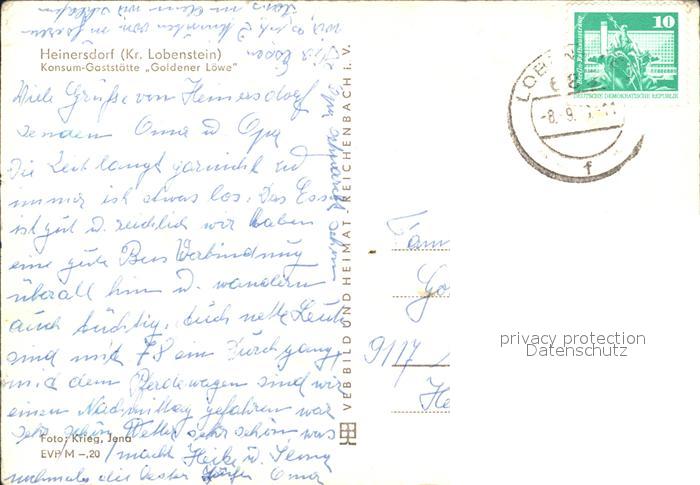 Heinersdorf (Kr. Lobenstein)
Konsum-Gaststätte „Goldener Löwe"
Viele Grüße von Heinersdorf
senden Oma u. Opa
Die Zeit langt garnicht
immer ist etwas los. Das Essen
ist gut u. reichlich wir haben
eine gute Bus Verbindung
überall hin u. wandern
auch tüchtig. Auch nette Leute
sind mit 78 ein Durchgang,
mit dem Pferdewagen sind wir
einen Nachmittag gefahren war
sehr schön Wetter sehr schön was
macht Heike u.
nochmals die Oma
Foto: Krieg, Jena
EVP M –,20
VEB BILD UND HEIMAT · REICHENBACH i. V.
10
Berlin-Rathausstrasse
DEUTSCHE DEMOKRATISCHE REPUBLIK
LOBE
-8.-9.
f
Fam
Go
9117
He
privacy protection
Datenschutz